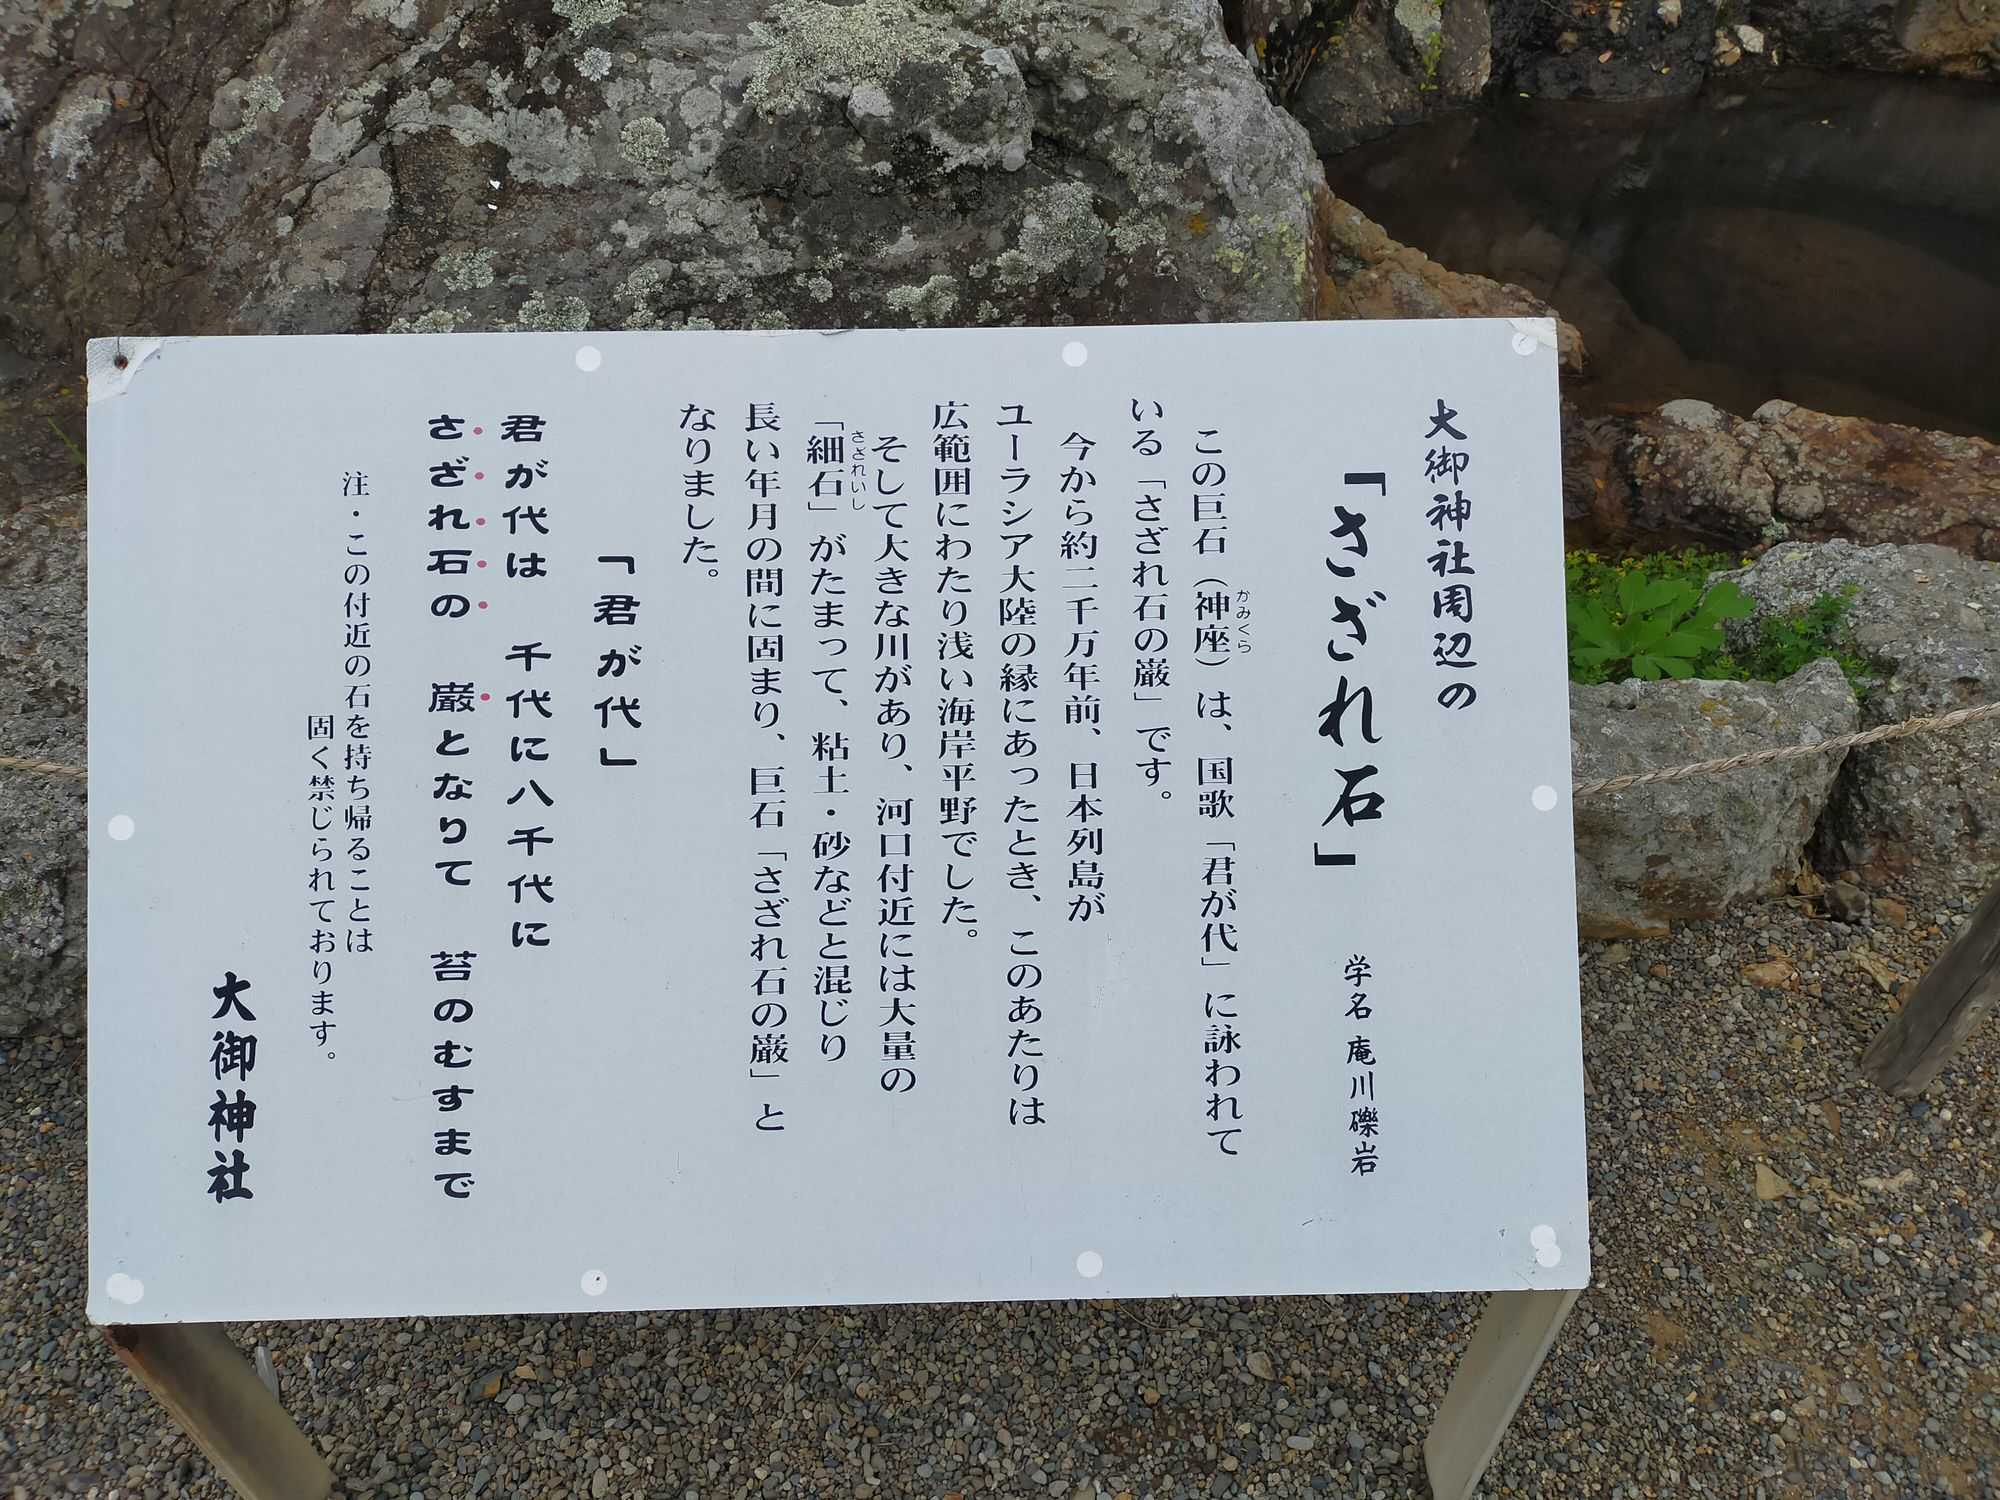 大御神社周辺の
「さざれ石」　学名 庵川礫岩
この巨石（神座）は、国歌「君が代」に詠われて
かみくら
いる「さざれ石の巌」です。
今から約二千万年前、日本列島が
ユーラシア大陸の縁にあったとき、このあたりは
広範囲にわたり浅い海岸平野でした。
そして大きな川があり、河口付近には大量の
「細石」がたまって、粘土・砂などと混じり
さざれいし
長い年月の間に固まり、巨石「さざれ石の巌」と
なりました。
「君が代」
君が代は　千代に八千代に
さざれ石の　巌となりて　苔のむすまで
注・この付近の石を持ち帰ることは
固く禁じられております。
大御神社